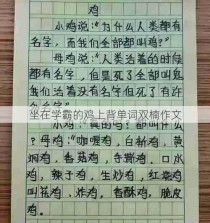 鸡
小鸡说:"为什么人类都有
名字,而我们全部都叫鸡?"
母鸡说:"人类活着的时候
都有名字,但是死了全部叫鬼
我们活着没有名字但死了有许
坐在学霸的鸡上背单词双楠作文
小鸡:"真的吗?都叫什么
?母鸡:"咖喱鸡,白斩鸡,黄
焖鸡,香菇鸡,手撕鸡,口水
鸡,辣子鸡,生炒鸡,红烧鸡
叫花鸡,炸鸡,香酥鸡,脆皮
鸡。